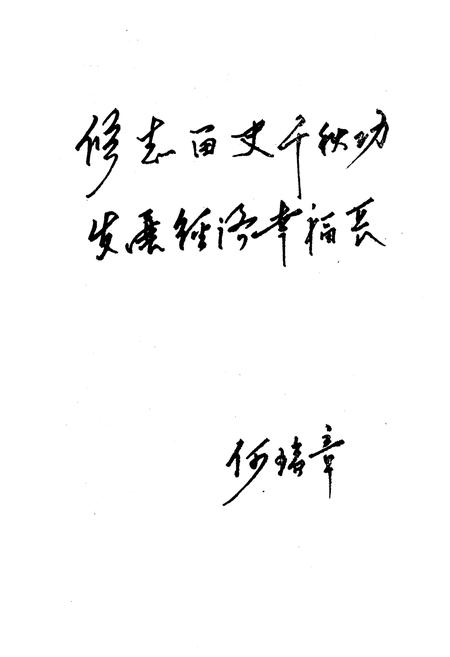 修志留史千秋功
发展经济幸福长
何靖章